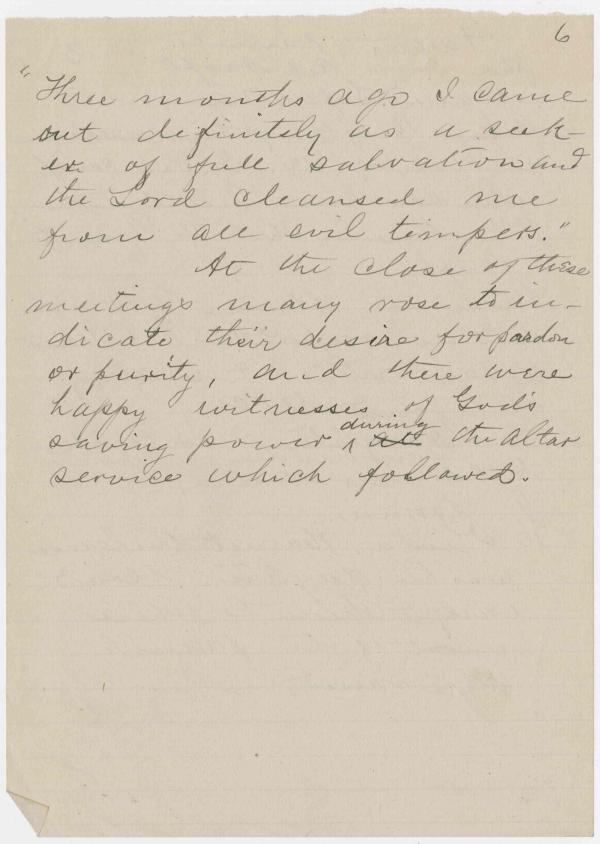 6
"Three months ago I came
out definitely as a seek-
er of full salvation and
the Lord cleansed me
from all evil tempers."
At the close of these
meetings many rose to in-
dicate their desire for pardon
or purity, and there were
happy witnesses of God's
saving power during at the altar
service which followed.